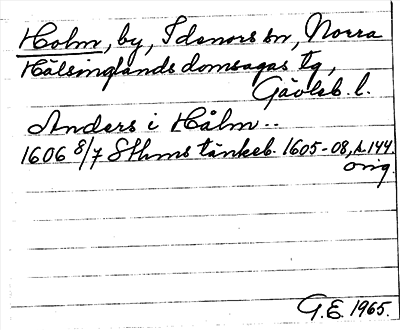 Holm, by, Idenors sn, Norra
Hälsinglands domsagas tg,
Gävleb. l.
Anders i Hålm..
1606 8/7 Sthms tänkeb. 1605-08, s. 144.
orig.
G.E. 1965.